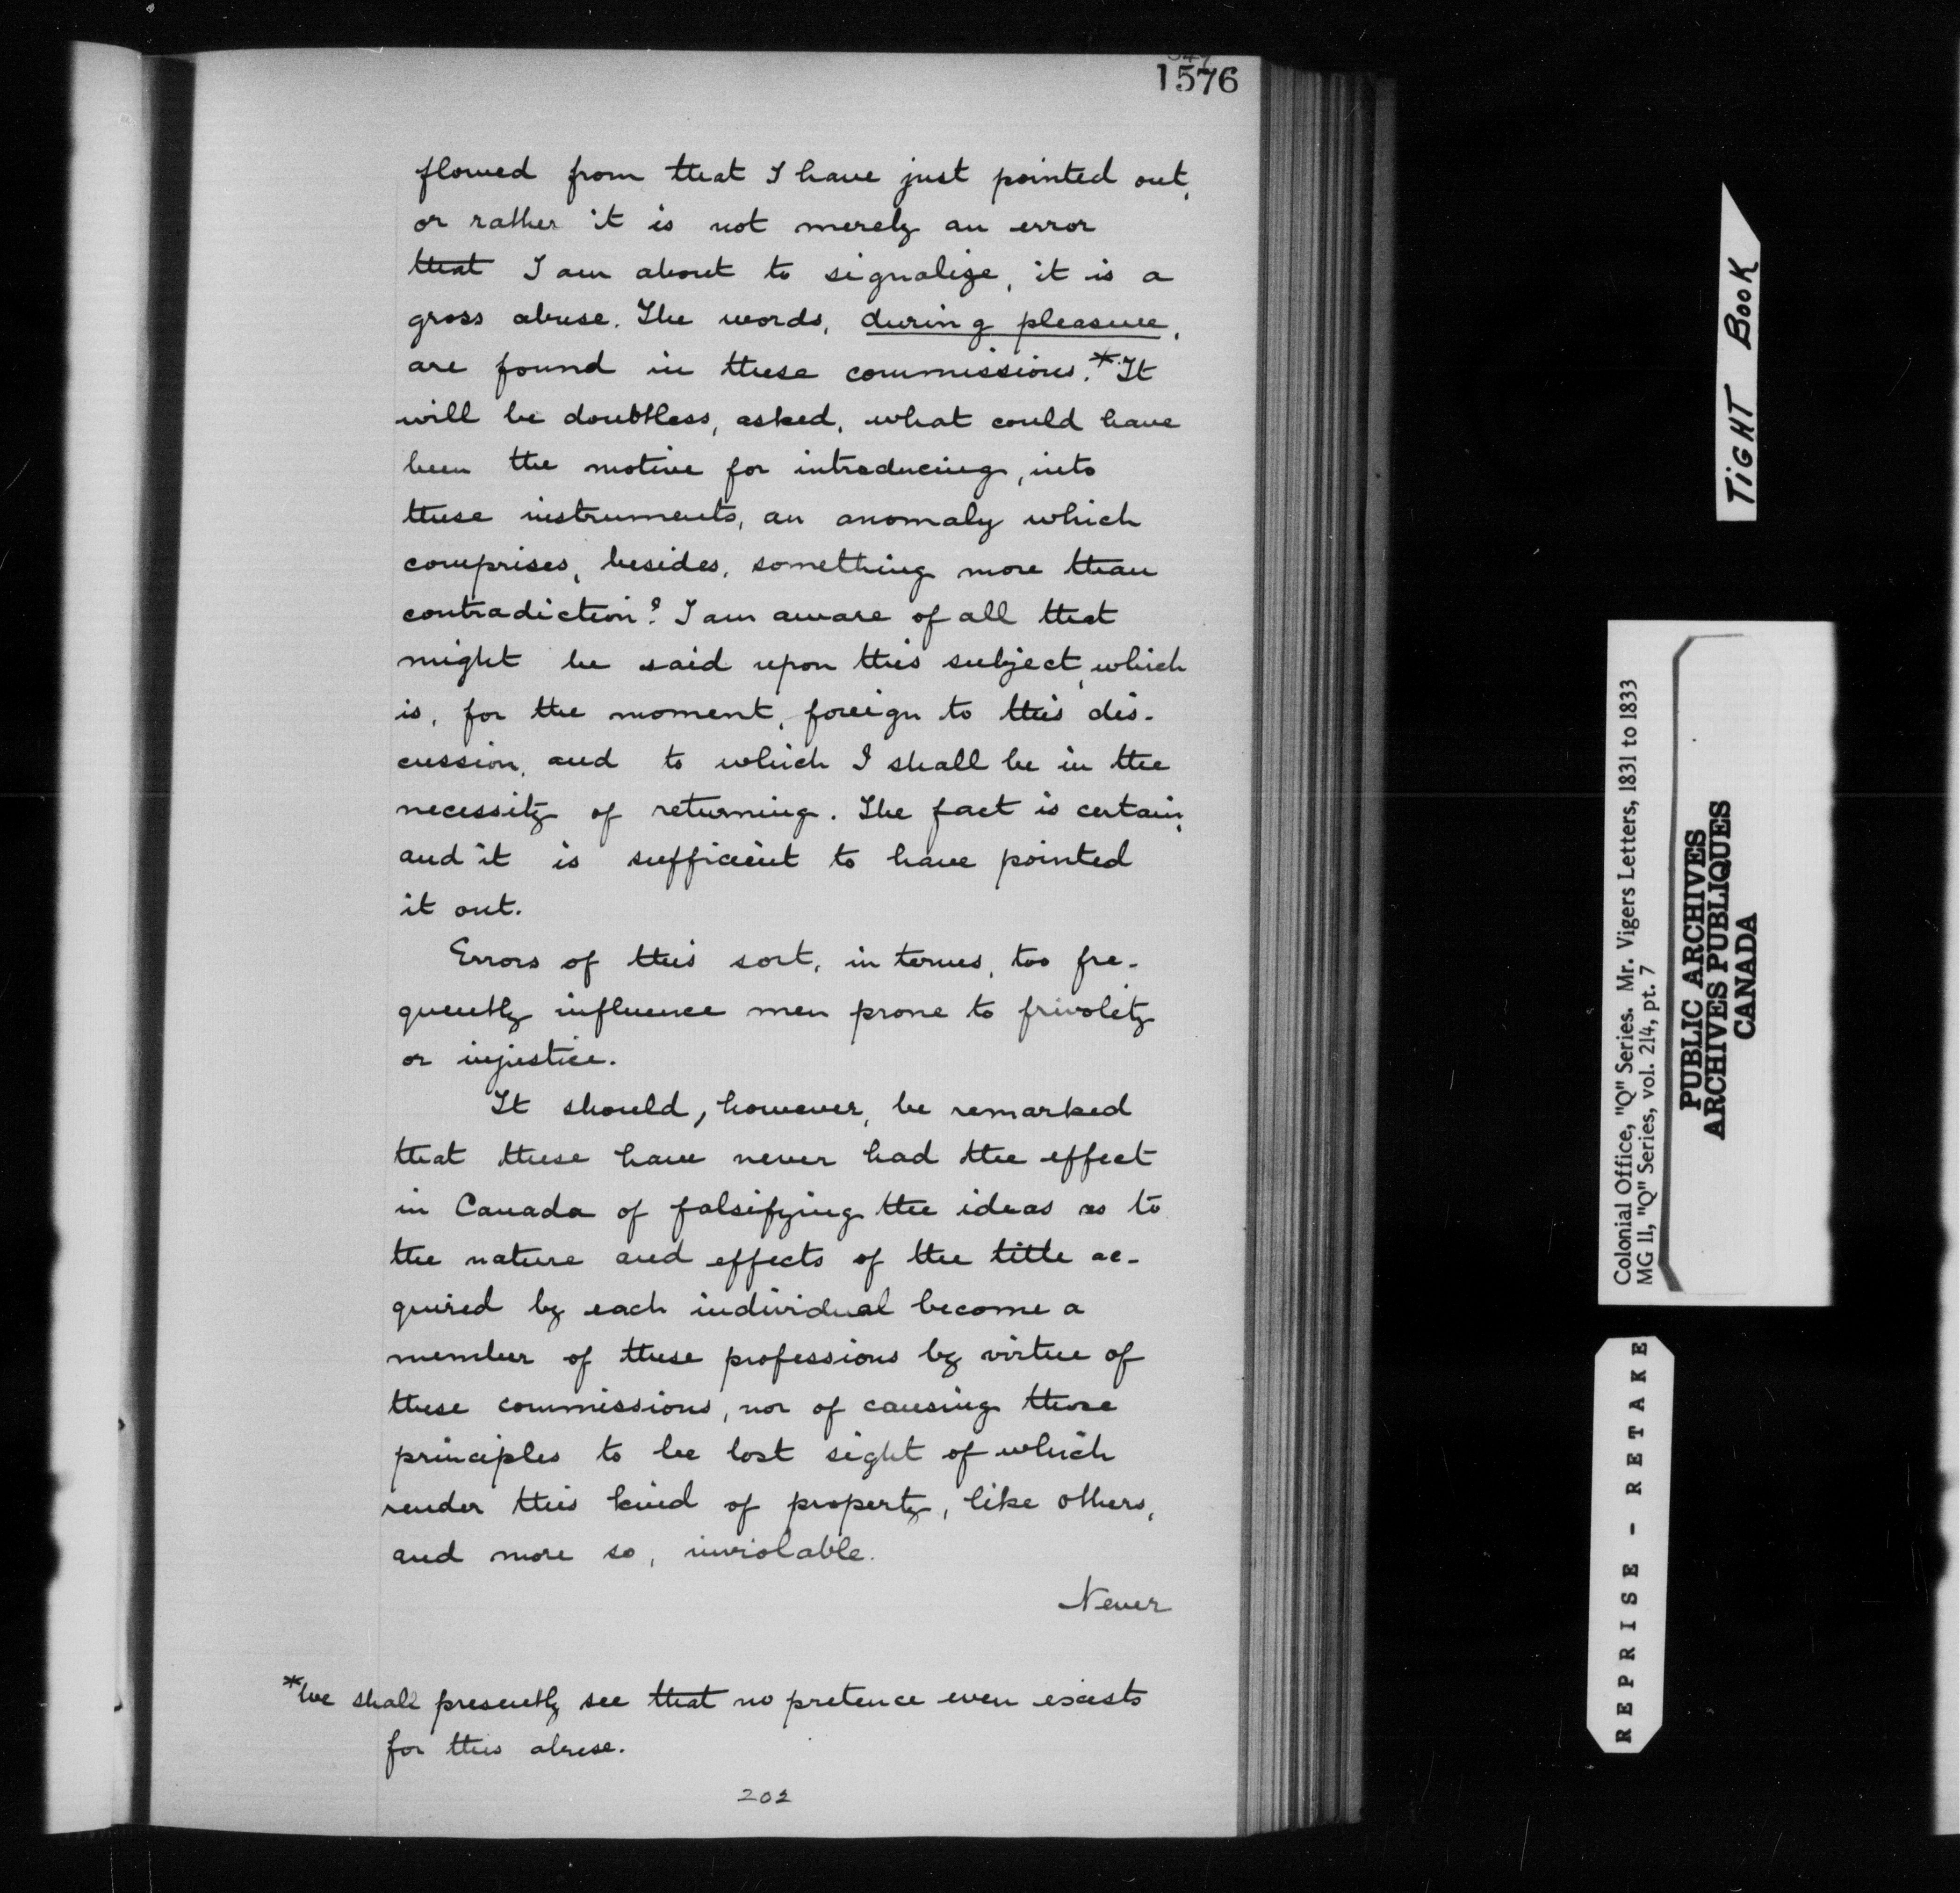 1576
flowed from that I have just pointed out,
or rather it is not merely an error
that I am about to signalize, it is a
gross abuse. The words, during pleasure,
are found in these commissions.* It
will be doubtless, asked, what could have
been the motive for introducing, into
these instruments, an anomaly which
comprises, besides, something more than
contradiction? I am aware of all that
might be said upon this subject, which
is, for the moment, foreign to this dis-
cussion, and to which I shall be in the
necessity of returning. The fact is certain,
and it is sufficient to have pointed
it out.
Errors of this sort, in terms, too fre-
quently influence men prone to frivolity
or injustice.
It should, however, be remarked
that these have never had the effect
in Canada of falsifying the ideas as to
the nature and effects of the title ac-
quired by each individual become a
member of these professions by virtue of
these commissions, nor of causing those
principles to be lost sight of which
render this kind of property, like others,
and more so, inviolable.
Never
*We shall presently see that no pretence even exists
for this abuse.
202
TiGHT BooK
Colonial Office, "Q" Series. Mr. Vigers Letters, 1831 to 1833
MG 11, "Q" Series, vol. 214, pt. 7
PUBLIC ARCHIVES
ARCHIVES PUBLIQUES
CANADA
REPRISE - RETAKE